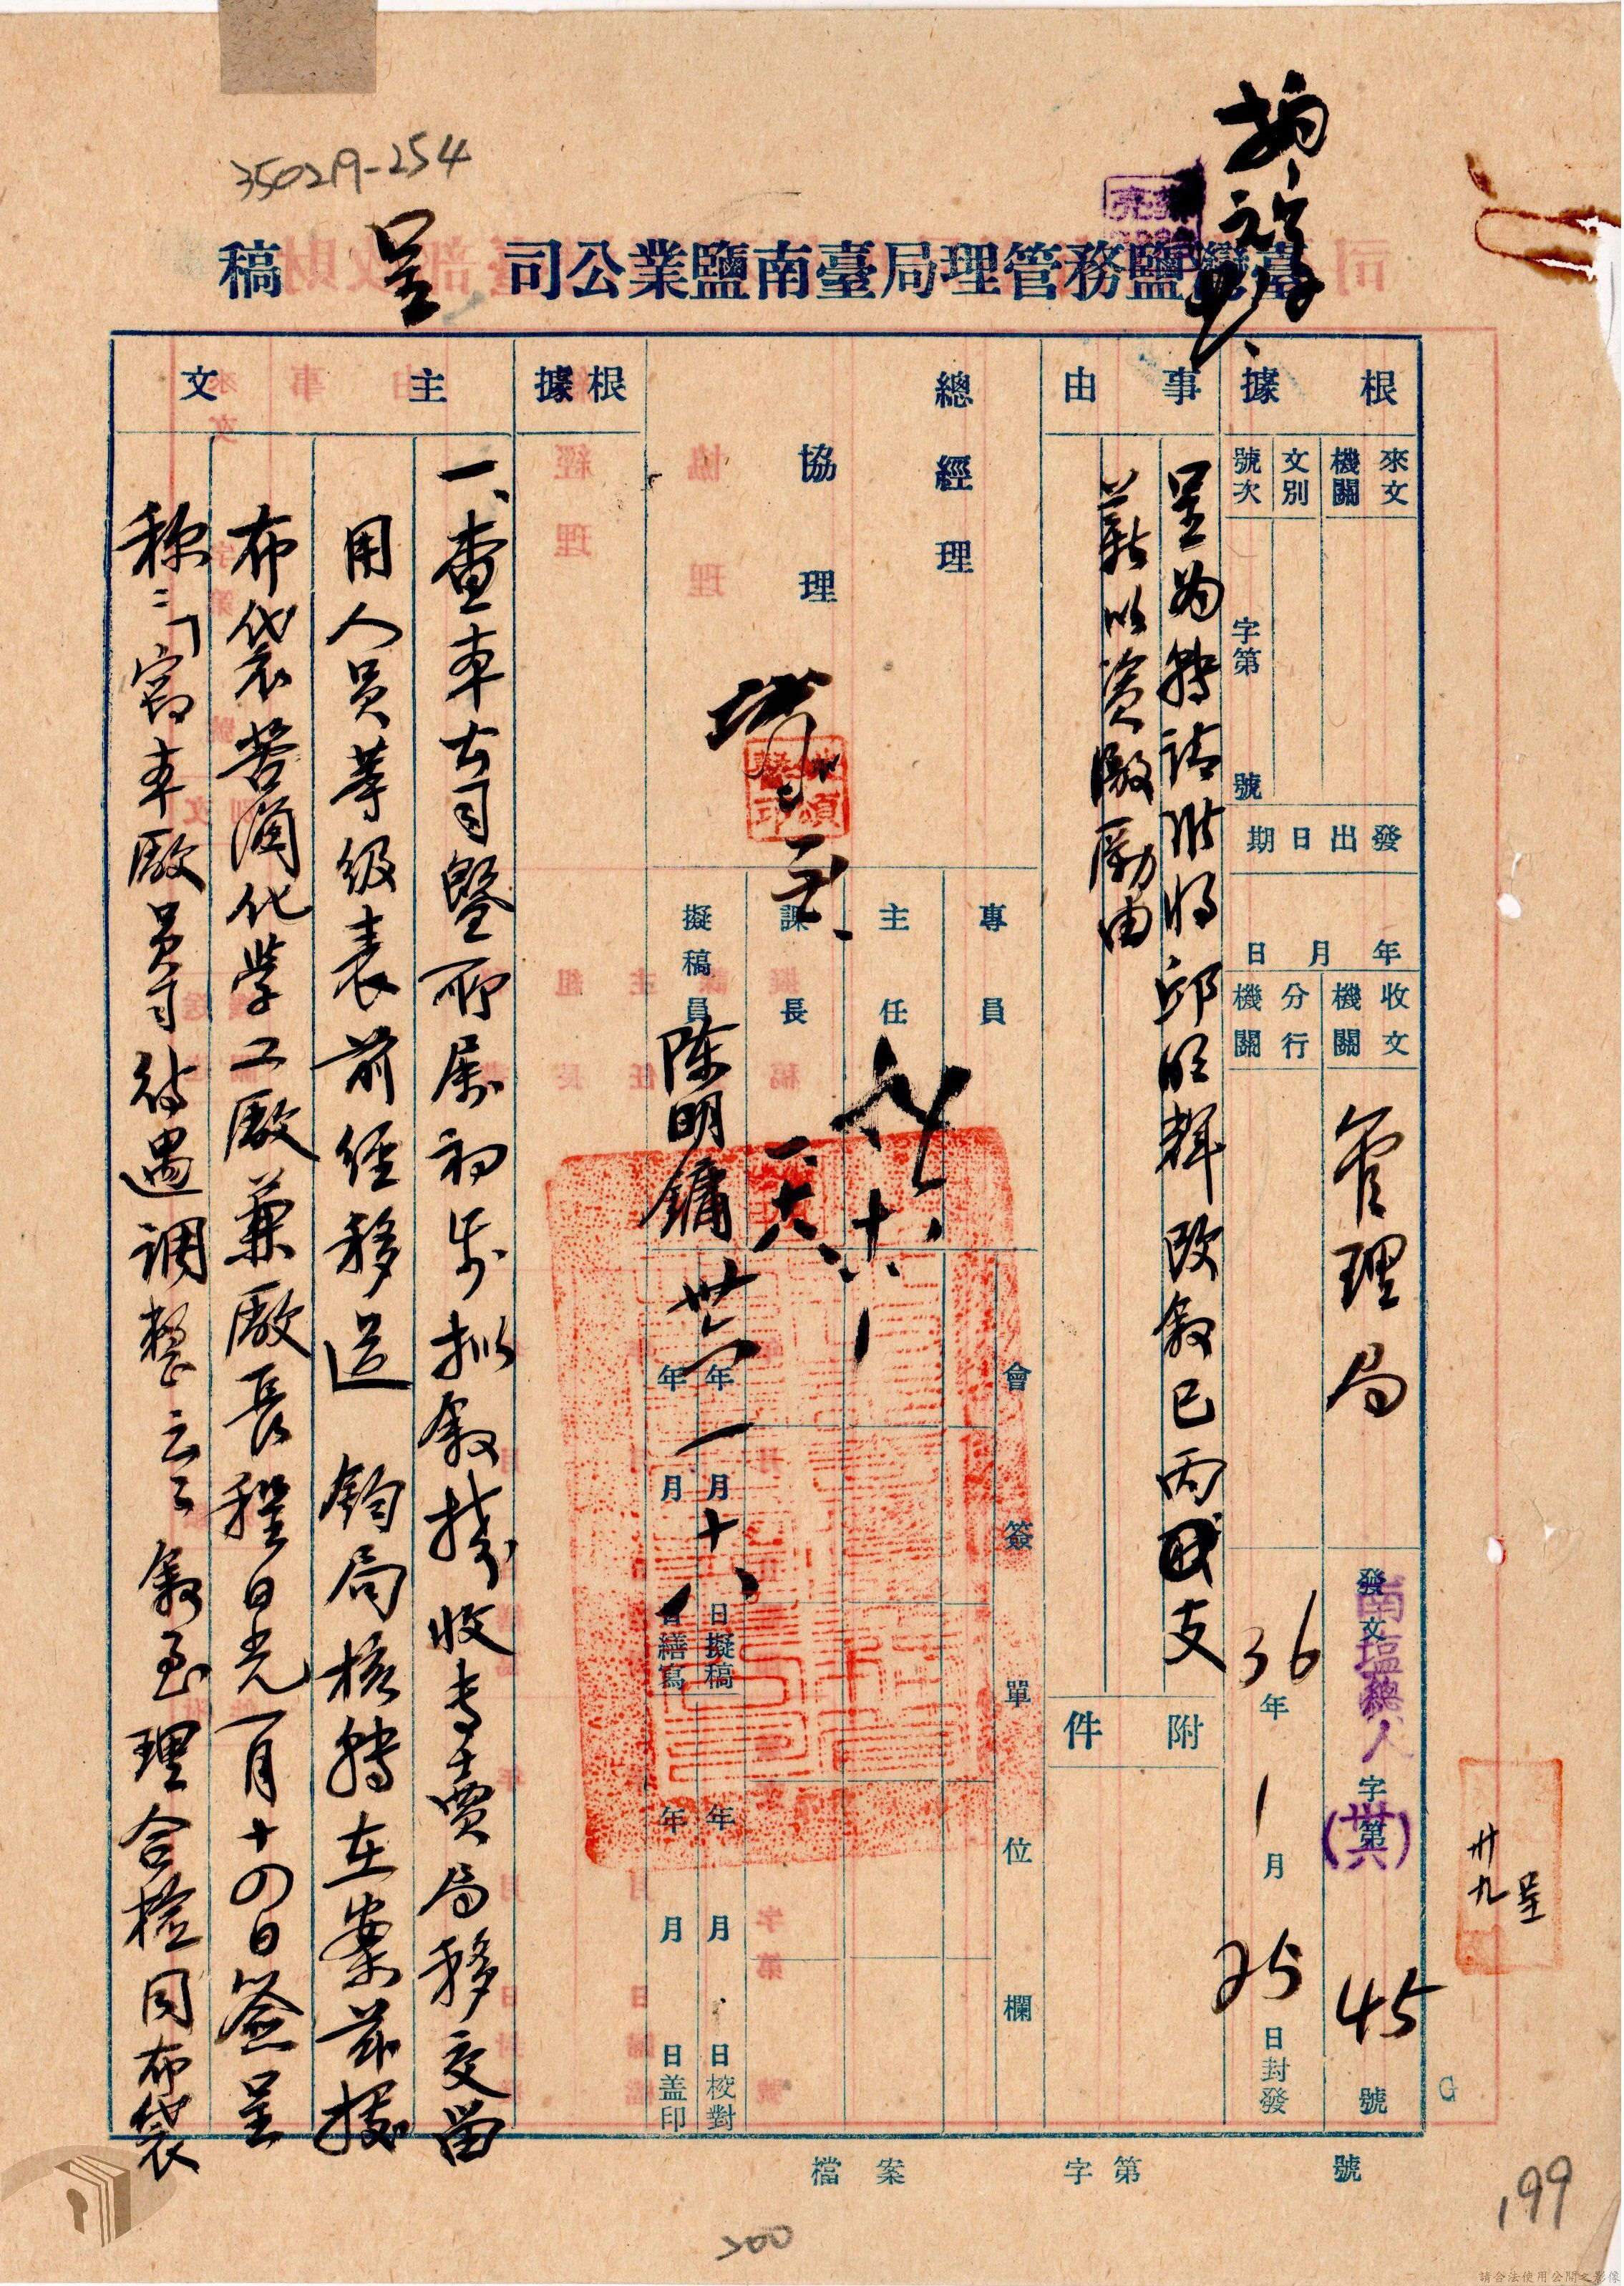 35029-254
臺灣鹽務管理局臺南鹽業公司 呈 稿
根據
來文機關
文別
號次
字第 號
發出日期
年 月 日
收文機關
管理局
分行機關
發文
南塩總人
字第
(卅六)
45
號
36年1月25日封發
事由
呈為轉請准將邱 輝改敘已丙 支
薪以資激勵由
附件
總經理
協理
專員
主任
課長
擬稿員
陳明鏞
會簽單位欄
卅六年一月十八日擬稿
年 月 日繕寫
年 月 日校對
年 月 日蓋印
根據
主文
一、查本公司暨所屬初步拟敘接收專賣局移交留
用人員等級表前經移送 鈞局核轉在案茲據
布袋苦滷化學工廠兼廠長程日光一月十四日簽呈
称:「竊本廠員司待遇調整云云敘至理合檢同布袋
檔案 字第 號
呈
卅九
G
199
200
請合法使用公開之影像